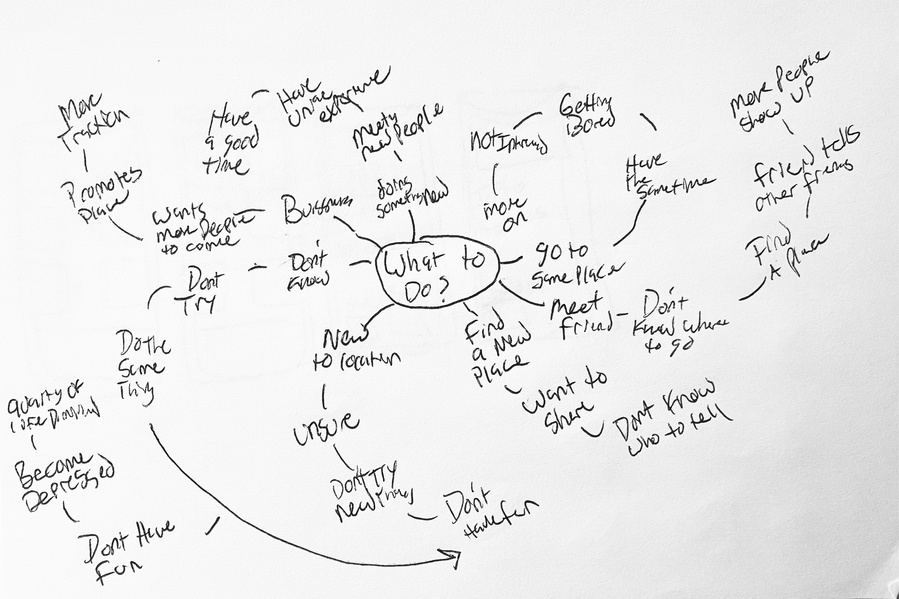 What to
Do?
Doing
Something New
Meeting
New People
Have
Unique
experience
Have
a good
time
Wants
more people
to come
Promotes
Place
More
Traction
Don't
Know
Dont
Try
Do the
Same
Thing
Dont Have
Fun
Become
Depressed
quality of
New
to location
unsure
Dont Try
New Things
Don't
Have fun
Find
a New
Place
Want to
Share
Dont Know
who to tell
meet
friend
Don't
Know where
to go
Find
A place
friend tells
other friends
more People
show UP
go to
same place
Have
the
Same time
Getting
Bored
more
on